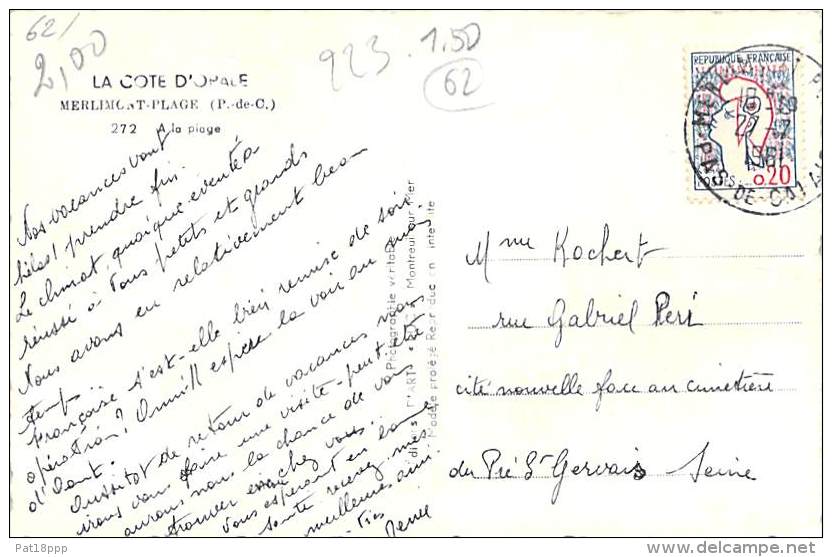 62/
2,00
923
1.50
62
LA COTE D'OPALE
MERLIMONT-PLAGE (P.-de-C.)
272 A la plage
Nos vacances vont
hélas! prendre fin.
Le climat, quoique éventé a
réussi à tous petits et grands
Nous avons eu relativement beau
temps.
Françoise s'est-elle bien remise de son
opération? Omnill espère la voir au mois
d'août.
Aussitôt de retour de vacances nous
irons vous faire une visite - peut-être
aurons nous la chance de vous
trouver chez vous.
Vous espérant en bonne
santé recevez mes
meilleures ami-
-tiés
Renée
Photographie véritable
Editions D'ART Montreuil sur Mer
Modèle protégé Reproduction interdite
REPUBLIQUE FRANÇAISE
POSTES 0,20
MERLIMONT P.
22 - 7
1961
PAS DE CALAIS
Mme Kochert
rue Gabriel Peri
cité nouvelle face au cimetière
du Pré St Gervais Seine
Pat18ppp
©delcampe.net